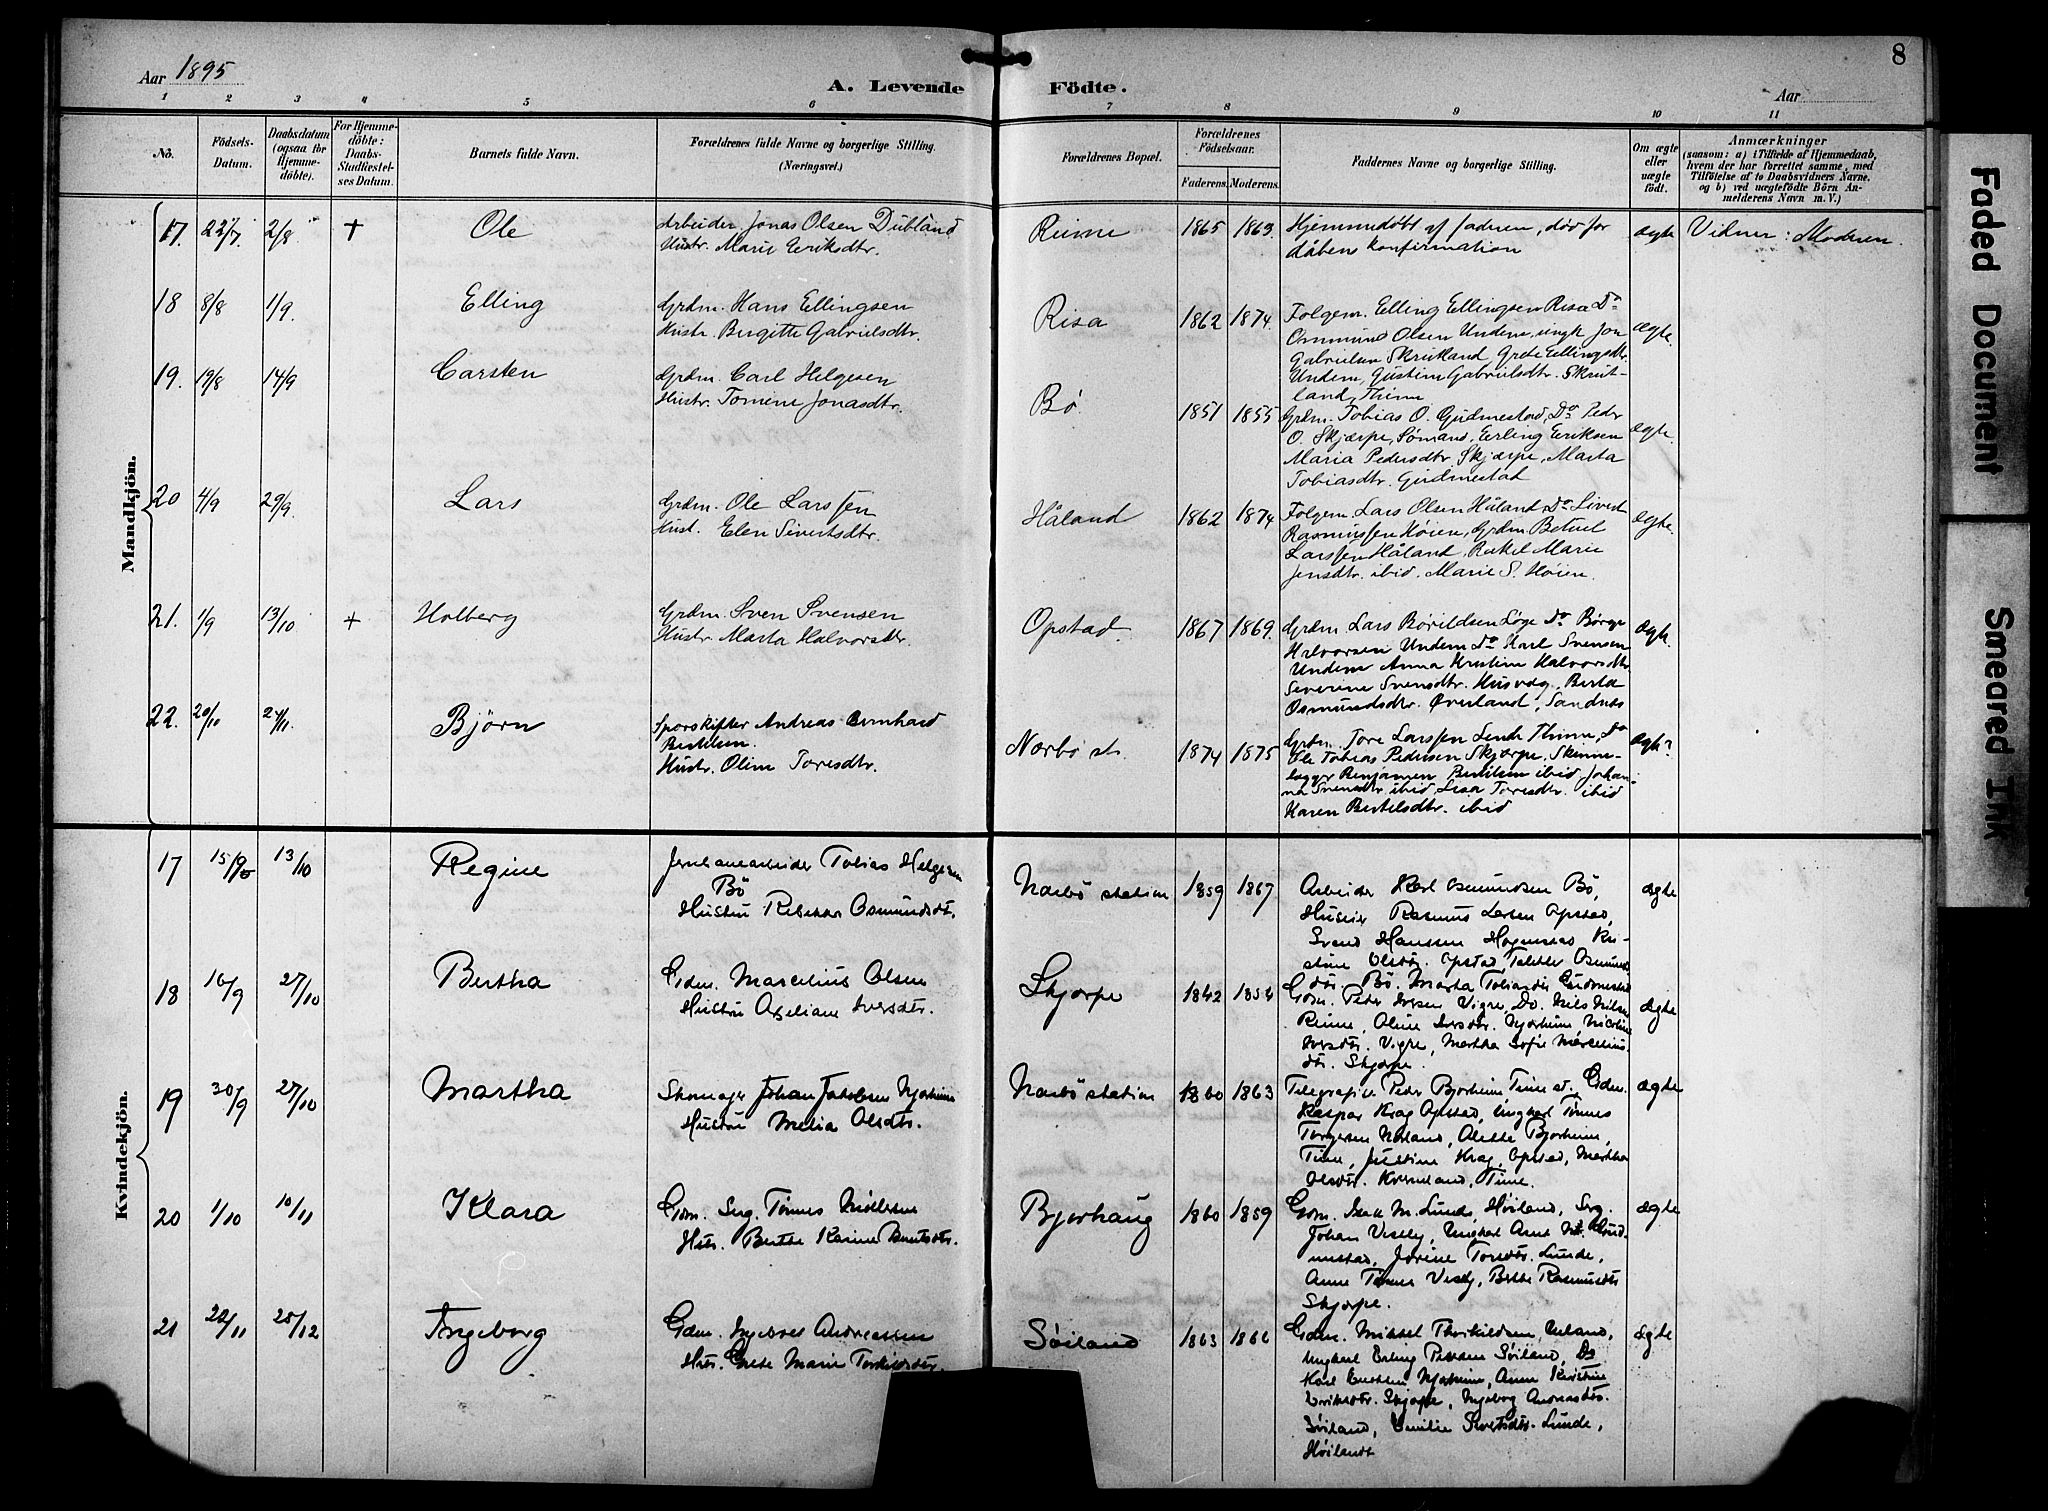 Aar 1895
A. Levende Födte.
Aar
8
1 2 3 4 5 6 7 8 9 10 11
No.
Födsets-Datum.
Daabsdatum (ogsaa for Hjemme-döbte).
For Hjemme-döbte: Daabs-Stadfæstel-ses Datum.
Barnets fulde Navn.
Forældrenes fulde Navne og borgerlige Stilling.
(Næringsvei.)
Forældrenes Bopæl.
Forældrenes Födselsaar.
Faderens. Moderens.
Faddernes Navne og borgerlige Stilling.
Om ægte eller uægte födt.
Anmærkninger
(saasom: a) i Tilfælde af Hjemmedaab,
hvem der har forrettet samme, med
Tilföielse af to Daabsvidners Navne.
og b) ved uægtefödte Börn An-
melderens Navn m. V.)
Mandkjön.
17. 22/7 2/8 + Ole
Arbeider Jonas Olsen Dubland
Hustr. Marie Eriksdtr.
Reime 1865 1863.
Hjemmedøbt af faderen, død før
dåbens konfirmation
ægte Vidner: Moderen.
18 8/8 1/9. Elling
Grdm. Hans Ellingsen
Hustr. Birgitte Gabrielsdtr.
Risa 1862 1874.
Folgem. Elling Ellingsen Risa Do
Osmund Olsen Undem, ungk. Jon
Gabrielsen Skrutland, Grete Ellingsdtr.
Undem, Gustine Gabrielsdtr. Skrut-
land, Thime
ægte.
19. 19/8 14/9 Carsten
Grdm. Carl Helgesen
Hustr. Tomine Jonasdtr.
Bö. 1851 1855
Grdm. Tobias O. Gudmestad, Do Peder
O. Skjærpe, Sømand, Erling Eriksen
Maria Pedersdtr. Skjærpe, Marta
Tobiasdtr. Gudmestad
ægte.
20 4/9 29/9. Lars
Grdm. Ole Larssen
Hust. Elen Sivertsdtr.
Håland 1862 1874
Folgem. Lars Olsen Håland, Do Sivert
Rasmussen Høien, Grdm Betuel
Larssen Håland, Rakel Marie
Jensdtr. ibid. Marie S. Høien.
ægte.
21. 1/9 13/10 + Holberg
Grdm. Sven Svensen
Hustr. Marta Halvorsdtr
Opstad. 1867 1869.
Grdm. Lars Børildsen Løge Do Børge
Halvorsen Undem Do Karl Svensen
Undem Anna Kristine Halvorsdtr.
Severine Svensdtr. Husvæg, Berta
Osmundsdtr. Øverland, Sandnes
ægte.
22. 20/10 24/11. Björn
Sporskifter Andreas Bernhard
Bertilsen.
Hustr. Oline Toresdtr.
Nærbö st. 1874 1875
Grdm. Tore Larssen Lende Thime, Do
Ole Tobias Pedersen Skjærpe, Skinne-
lægger Benjamen Bertilsen ibid, Johan-
na Svensdtr. ibid, Lisa Toresdtr. ibid
Karen Bertelsdtr. ibid
Kvindekjön.
17 15/9 13/10 Regine
Jernbanearbeider Tobias Helgesen
Bö
Hustru Rebekka Osmundsdtr.
Narbö station 1859 1867
Arbeider Karl Osmundsen Bö,
Huseier Rasmus Larsen Opstad,
Svend Hanssen Hognestad Kri-
stine Olsdtr. Opstad Tabitha Osmunds
dtr. Bö. Marta Tobiasdtr Gudmestad
ægte
18 16/9 27/10 Bertha
Gdm. Marcelius Olsen
Hustru Axeliane Iversdtr.
Skjorpe 1842 1854
Gdm. Peder Iversen Vigre, Do. Nils Nilsen
Reime, Oline Iversdtr. Njærheim, Nicoline
Iversdtr. Vigre, Martha Sofie Marcelius-
dtr. Skjorpe.
ægte
19 30/9 27/10 Martha
Skomager Johan Jakobsen Njærheim
Hustru Melia Olsdtr.
Narbö station 1860 1863
Telegrafist Peder Bjorheim, Time st., Gdm.
Kaspar Krag Opstad, Ungkarl Tönnes
Torgersen Norland, Alette Bjorheim,
Time, Justine Krag, Opstad, Martha
Olsdtr. Kverneland, Time.
ægte
20 1/10 10/11 Klara
Gdm. Serg. Tönnes Mikkelsen
Hstr. Berthe Karine Berntsdtr.
Bjorhaug 1860 1859
Gdm. Isak M. Lunde, Høiland, Serg.
Johan Visely, Ungkarl Arnt M. Gud-
mestad, Jorine Torsdtr. Lunde,
Anne Tönnes Visely, Berte Rasmusdtr
Skjorpe.
ægte
21 22/11 25/12 Ingeborg
Gdm. Ingebret Andreassen
Hstr. Grete Marie Torkildsdtr.
Söiland 1863 1866
Gdm. Mikkel Thorkildsen, Ueland,
Ungkarl Erling Petersen Söiland, Do
Karl Knudsen Njærheim, Anne Kristine
Eriksdtr. Skjorpe, Ingeborg Andreasdtr.
Söiland, Emilie Sivertsdtr. Lunde,
Höilandt
ægte
Faded Document
Smeared Ink